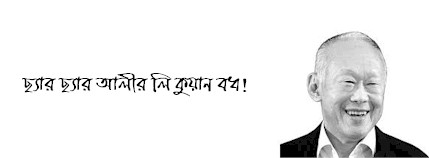 ছ্যার ছ্যার আলীর লি কুয়ান বধ!